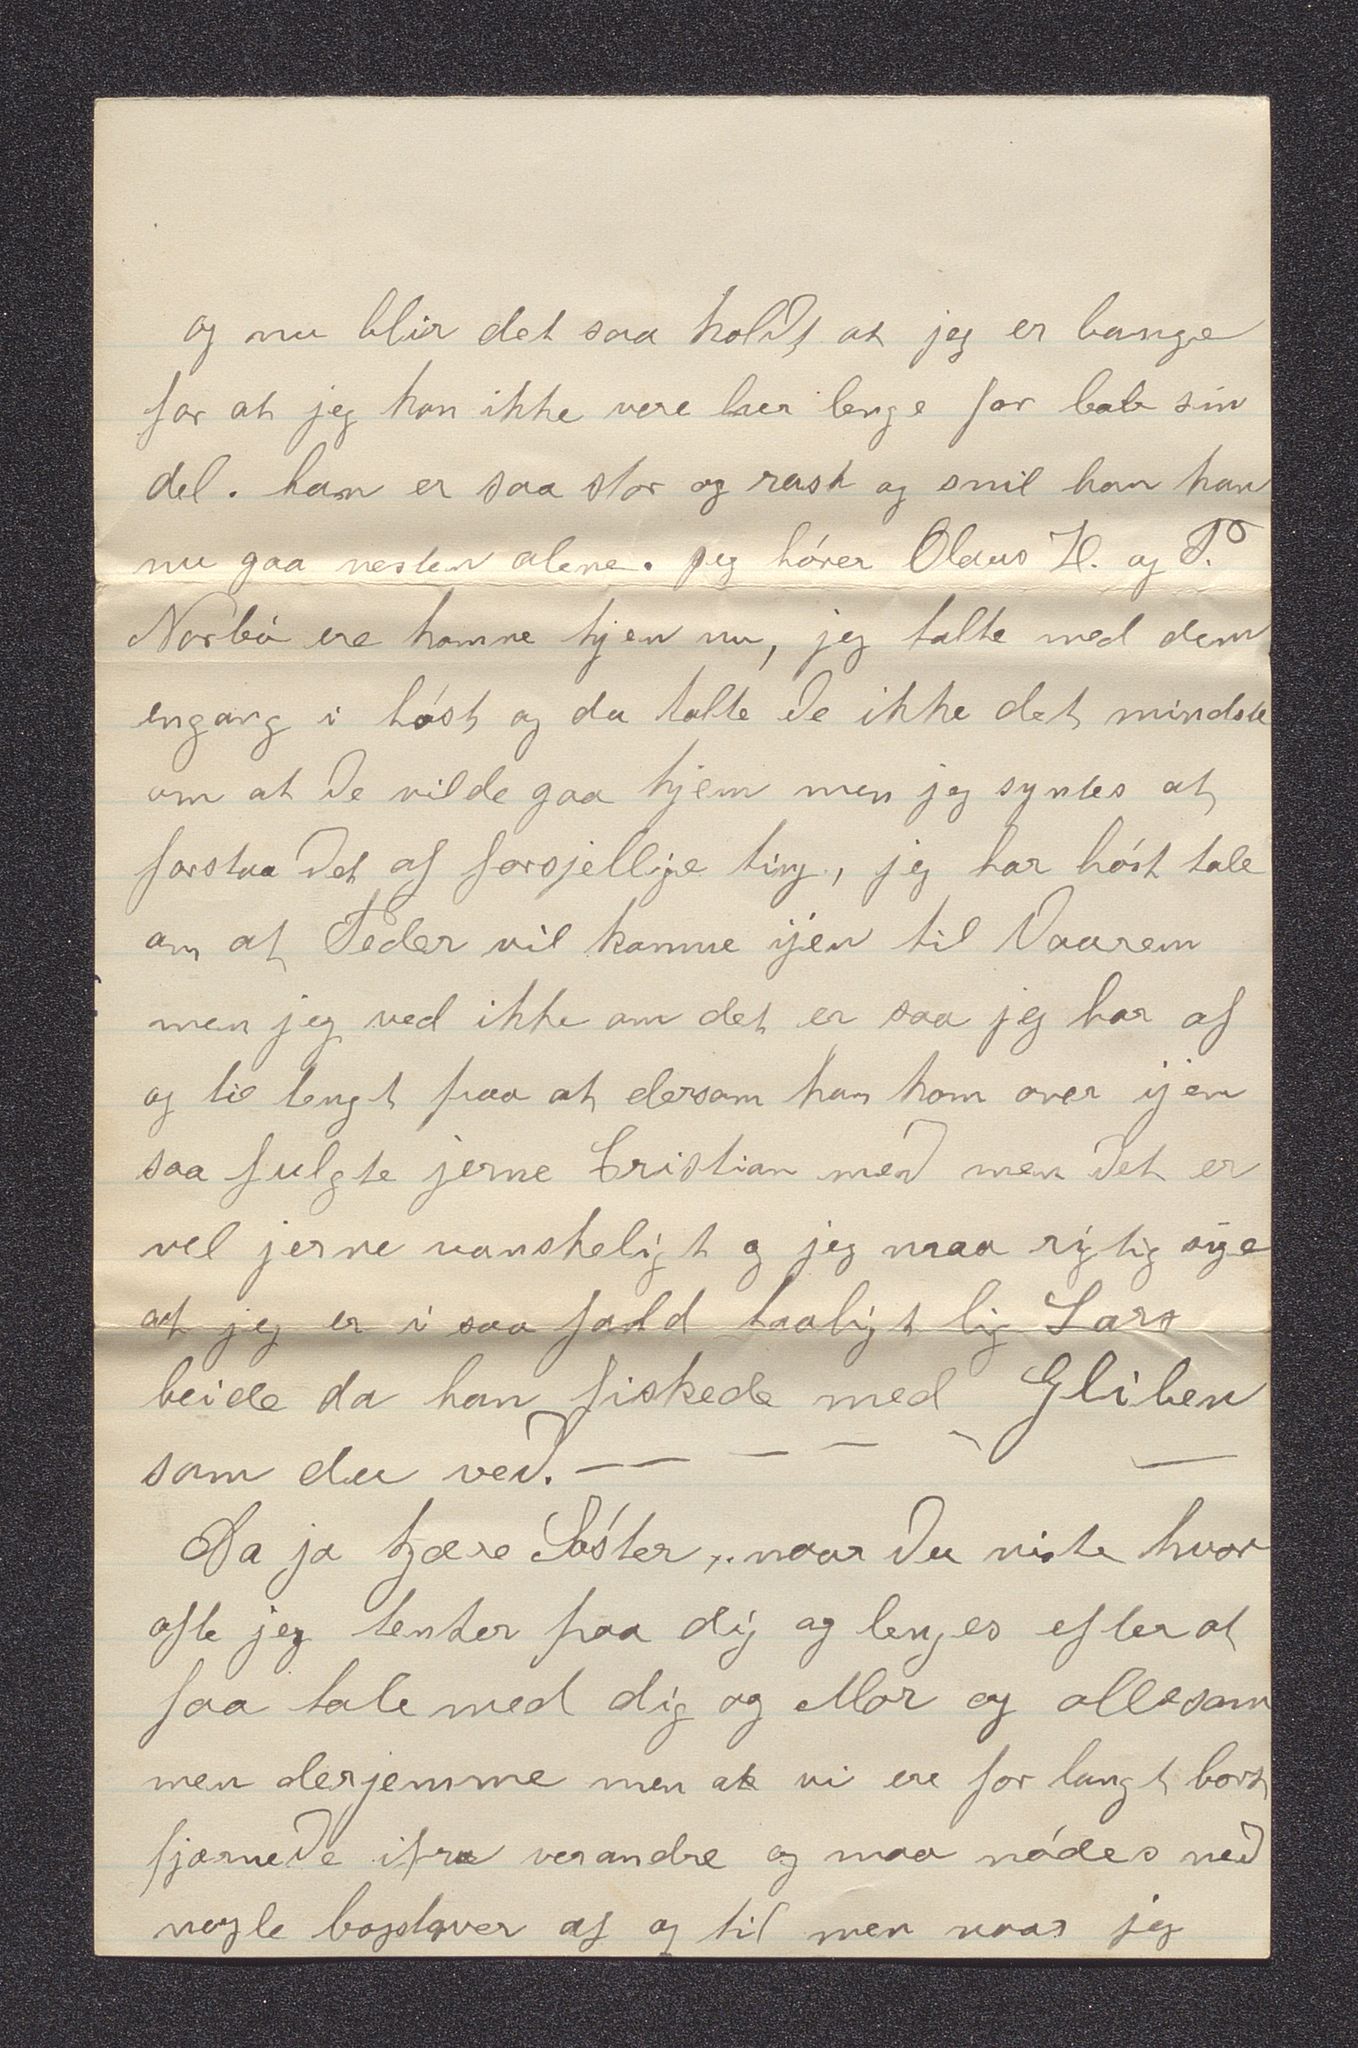 og nu blir det saa koldt at jeg er bange
for at jeg kan ikke vere her lenge for bab sin
del. han er saa stor og rask og snil han kan
nu gaa nesten alene. jeg hórer Olaus H. og P.
Norbó ere komne hjen nu, jeg talte med dem
engang i hóst og da talte de ikke det mindste
om at de vilde gaa hjem men jeg syntes at
forstaa det af forsjellige ting, jeg har hórt tale
om at Peder vil komme ijen til Vaarem
men jeg ved ikke om det er saa jeg har af
og til tengt paa at dersom han kom over ijen
saa fulgte jerne Cristian med men det er
vel jerne vanskeligt og jeg maa rigtig sige
at jeg er i saa fald taaligt lig Lars
beide da han fiskede med Gliben
som du ved. — — — — —
Ja ja kjære Sóster, naar du viste hvor
ofte jeg tenker paa dig og lenjes efter at
faa tale med dig og Mor og allesam
men derjemme men at vi ere for langt bort
fjærnede ifra verandre og maa nódes med
nogle bogstaver af og til men naar jeg